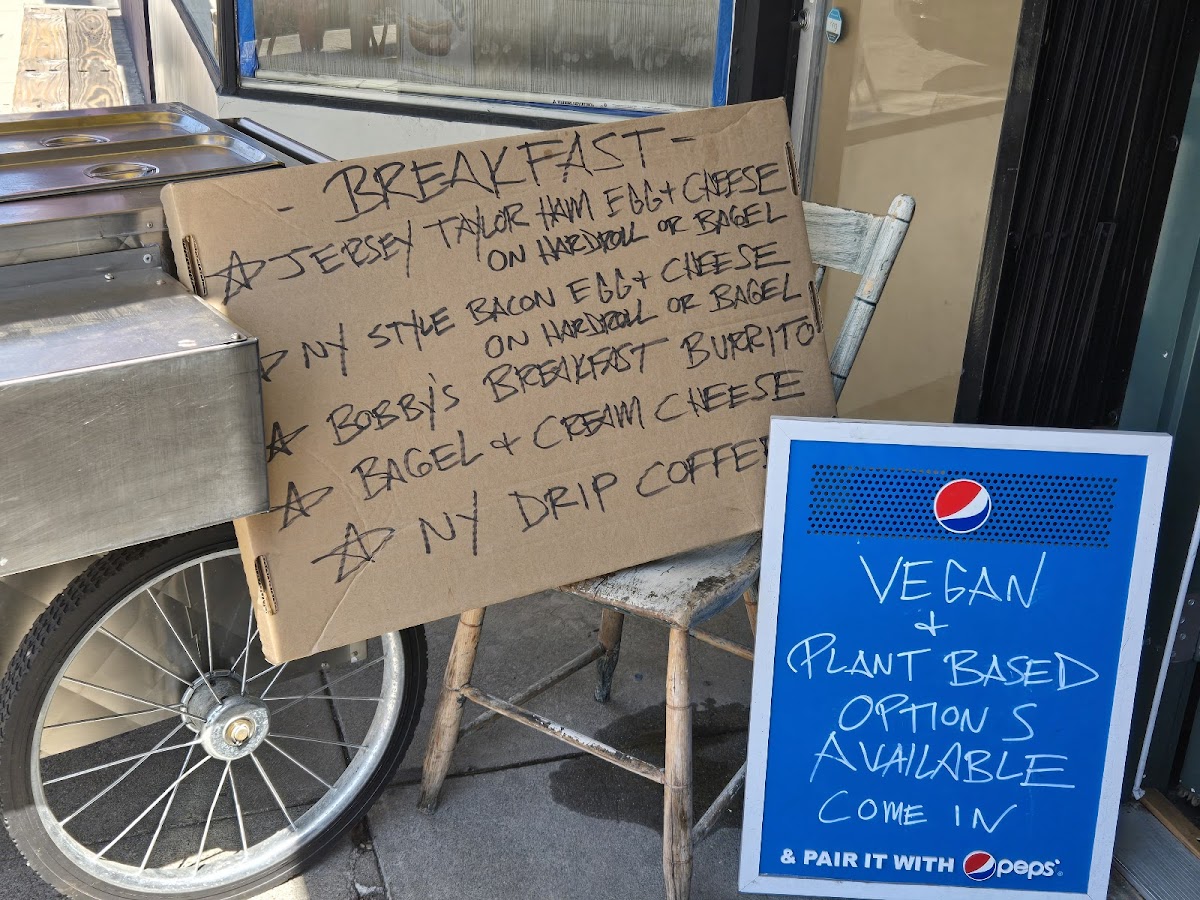 - BREAKFAST -
☆ JERSEY TAYLOR HAM EGG + CHEESE
ON HARDROLL OR BAGEL
☆ NY STYLE BACON EGG + CHEESE
ON HARDROLL OR BAGEL
☆ BOBBY'S BREAKFAST BURRITO
☆ BAGEL + CREAM CHEESE
☆ NY DRIP COFFEE
VEGAN
+
PLANT BASED
OPTIONS
AVAILABLE
COME IN
& PAIR IT WITH pepsi